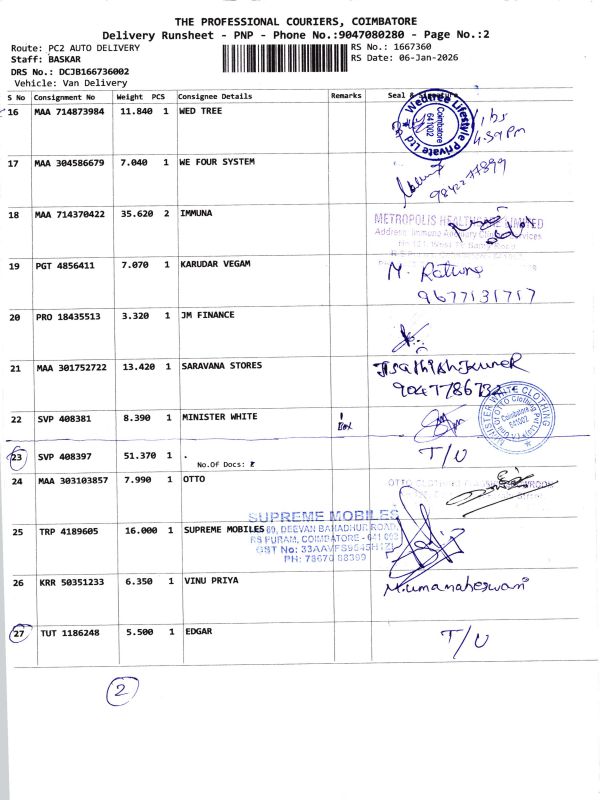 THE PROFESSIONAL COURIERS, COIMBATORE
Delivery Runsheet - PNP - Phone No.:9047080280 - Page No.:2
Route: PC2 AUTO DELIVERY
RS No.: 1667360
Staff: BASKAR
RS Date: 06-Jan-2026
DRS No.: DCJB166736002
Vehicle: Van Delivery
S No Consignment No Weight PCS Consignee Details Remarks Seal & Signature
16 MAA 714873984 11.840 1 WED TREE
Wedtree Lifestyle Private Ltd
Coimbatore
641002
4.54 Pm
17 MAA 304586679 7.040 1 WE FOUR SYSTEM
18 MAA 714370422 35.620 2 IMMUNA
METROPOLIS HEALTHCARE LIMITED
19 PGT 4856411 7.070 1 KARUDAR VEGAM
M. Rathna
9677131717
20 PRO 18435513 3.320 1 JM FINANCE
21 MAA 301752722 13.420 1 SARAVANA STORES
22 SVP 408381 8.390 1 MINISTER WHITE 1
Box
MINISTER WHITE CLOTHING
Coimbatore
641002
23 SVP 408397 51.370 1 . T/U
No.Of Docs:
24 MAA 303103857 7.990 1 OTTO
25 TRP 4189605 16.000 1 SUPREME MOBILES
SUPREME MOBILES
69, DEEVAN BAHADHUR ROAD,
RS PURAM, COIMBATORE - 641 002
PH: 78670 88399
26 KRR 50351233 6.350 1 VINU PRIYA
M.umamaheswari
27 TUT 1186248 5.500 1 EDGAR T/U
2